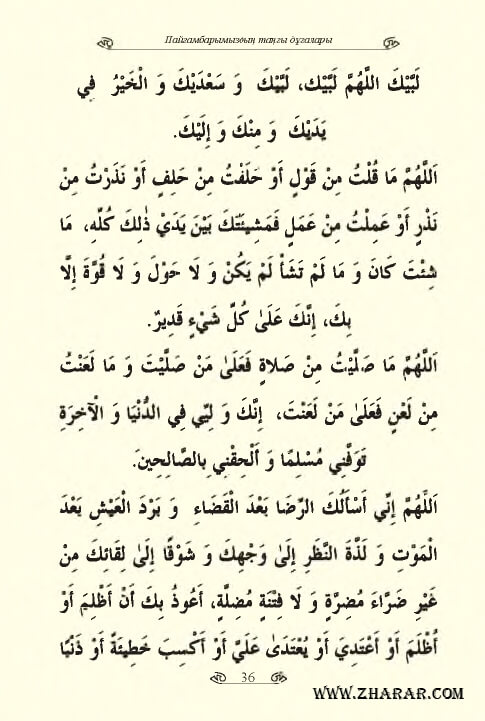 Пайғамбарымыздың таңғы дұғалары
لَبَّيْكَ اللَّهُمَّ لَبَّيْك، لَبَّيْكَ وَ سَعْدَيْكَ وَ الْخَيْرُ فِي
يَدَيْكَ وَ مِنْكَ وَ إِلَيْكَ.
اَللَّهُمَّ مَا قُلْتُ مِنْ قَوْلٍ أَوْ حَلَفْتُ مِنْ حَلِفٍ أَوْ نَذَرْتُ مِنْ
نَذْرٍ أَوْ عَمِلْتُ مِنْ عَمَلٍ فَمَشِيئَتُكَ بَيْنَ يَدَيْ ذٰلِكَ كُلِّهِ، مَا
شِئْتَ كَانَ وَ مَا لَمْ تَشَأْ لَمْ يَكُنْ وَ لَا حَوْلَ وَ لَا قُوَّةَ إِلَّا
بِكَ، إِنَّكَ عَلَىٰ كُلِّ شَيْءٍ قَدِيرٌ.
اَللَّهُمَّ مَا صَلَّيْتُ مِنْ صَلَاةٍ فَعَلَىٰ مَنْ صَلَّيْتَ وَ مَا لَعَنْتُ
مِنْ لَعْنٍ فَعَلَىٰ مَنْ لَعَنْتَ، إِنَّكَ وَ لِيِّي فِي الدُّنْيَا وَ الْآخِرَةِ
تَوَفَّنِي مُسْلِمًا وَ أَلْحِقْنِي بِالصَّالِحِينَ.
اَللَّهُمَّ إِنِّي أَسْأَلُكَ الرِّضَا بَعْدَ الْقَضَاءِ وَ بَرْدَ الْعَيْشِ بَعْدَ
الْمَوْتِ وَ لَذَّةَ النَّظَرِ إِلَىٰ وَجْهِكَ وَ شَوْقًا إِلَىٰ لِقَائِكَ مِنْ
غَيْرِ ضَرَّاءَ مُضِرَّةٍ وَ لَا فِتْنَةٍ مُضِلَّةٍ، أَعُوذُ بِكَ أَنْ أَظْلِمَ أَوْ
أُظْلَمَ أَوْ أَعْتَدِيَ أَوْ يُعْتَدَىٰ عَلَيَّ أَوْ أَكْسِبَ خَطِيئَةً أَوْ ذَنْبًا
36
WWW.ZHARAR.COM